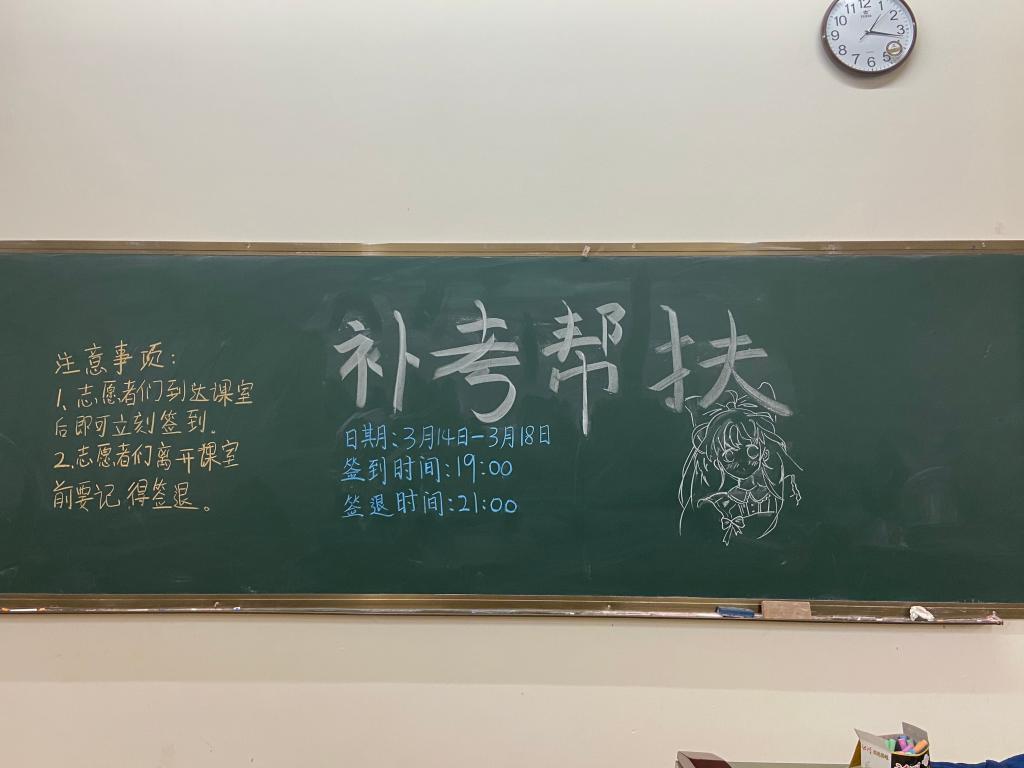 12
11
1
10
2
9
3
8
7
6
5
补考帮扶
注意事项:
1、志愿者们到达课室
后即可立刻签到。
2.志愿者们离开课室
前要记得签退。
日期:3月14日-3月18日
签到时间:19:00
签退时间:21:00